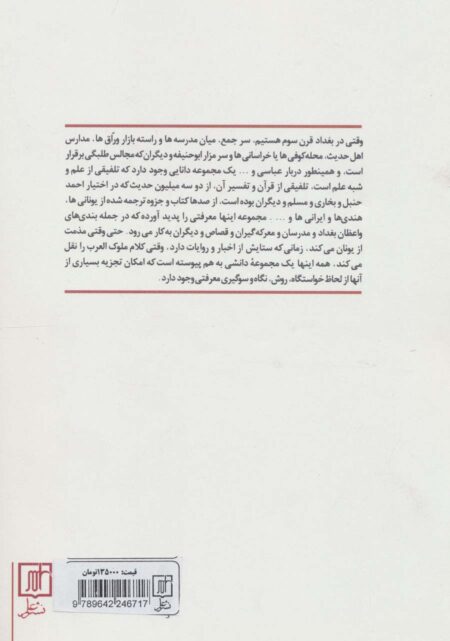 وقتی در بغداد قرن سوم هستیم، سر جمع، میان مدرسه ها و راسته بازار ورّاق ها، مدارس
اهل حدیث، محله کوفی ها یا خراسانی ها و سر مزار ابوحنیفه و دیگران که مجالس طلبگی برقرار
است، و همینطور دربار عباسی و ... یک مجموعه دانایی وجود دارد که تلفیقی از علم و
شبه علم است. تلفیقی از قرآن و تفسیر آن، از دو سه میلیون حدیث که در اختیار احمد
حنبل و بخاری و مسلم و دیگران بوده است، از صدها کتاب و جزوه ترجمه شده از یونانی ها،
هندی ها و ایرانی ها و ... . مجموعه اینها معرفتی را پدید آورده که در جمله بندی های
واعظان بغداد و مدرسان و معرکه گیران و قصاص و دیگران به کار می رود. حتی وقتی مذمت
از یونان می کند، زمانی که ستایش از اخبار و روایات دارد، وقتی کلام ملوک العرب را نقل
می کند، همه اینها یک مجموعهٔ دانشی به هم پیوسته است که امکان تجزیه بسیاری از
آنها از لحاظ خواستگاه، روش، نگاه و سوگیری معرفتی وجود دارد.
قیمت: ۱۳۵۰۰۰تومان
9 789642 246717
نشر علم